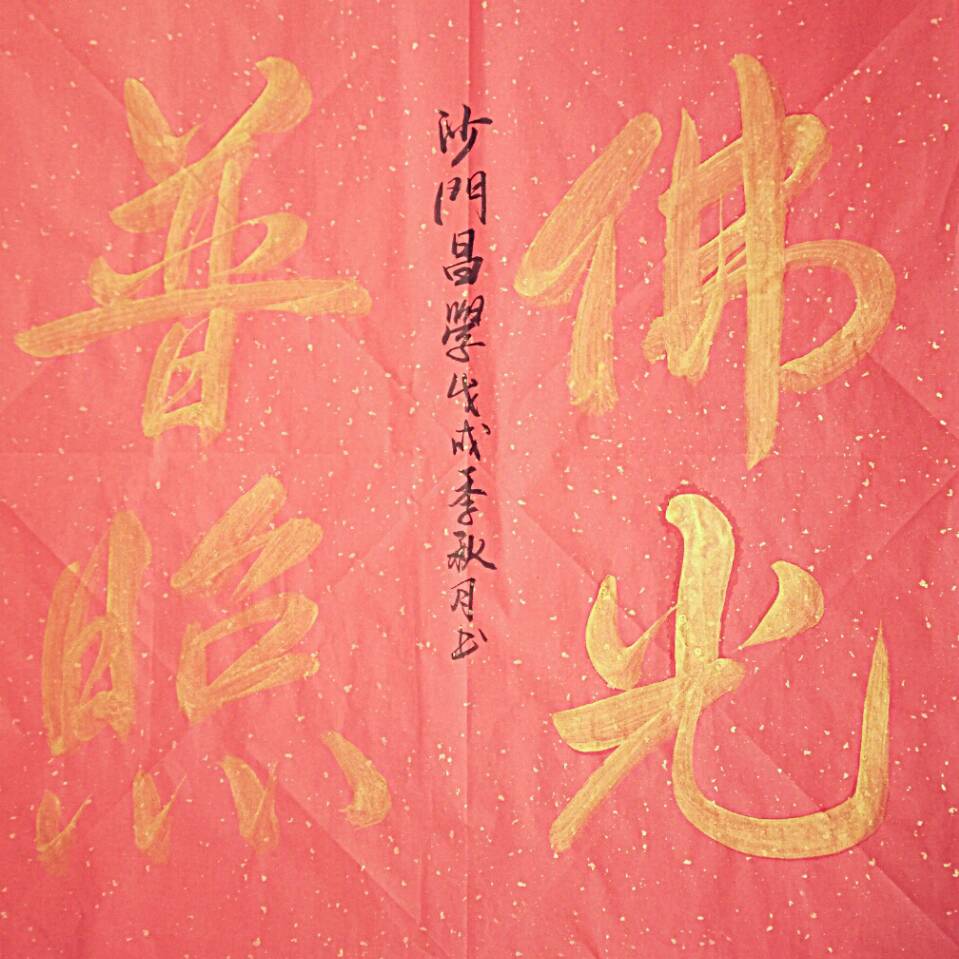 佛光
普照
沙門昌學戊戌季秋月书